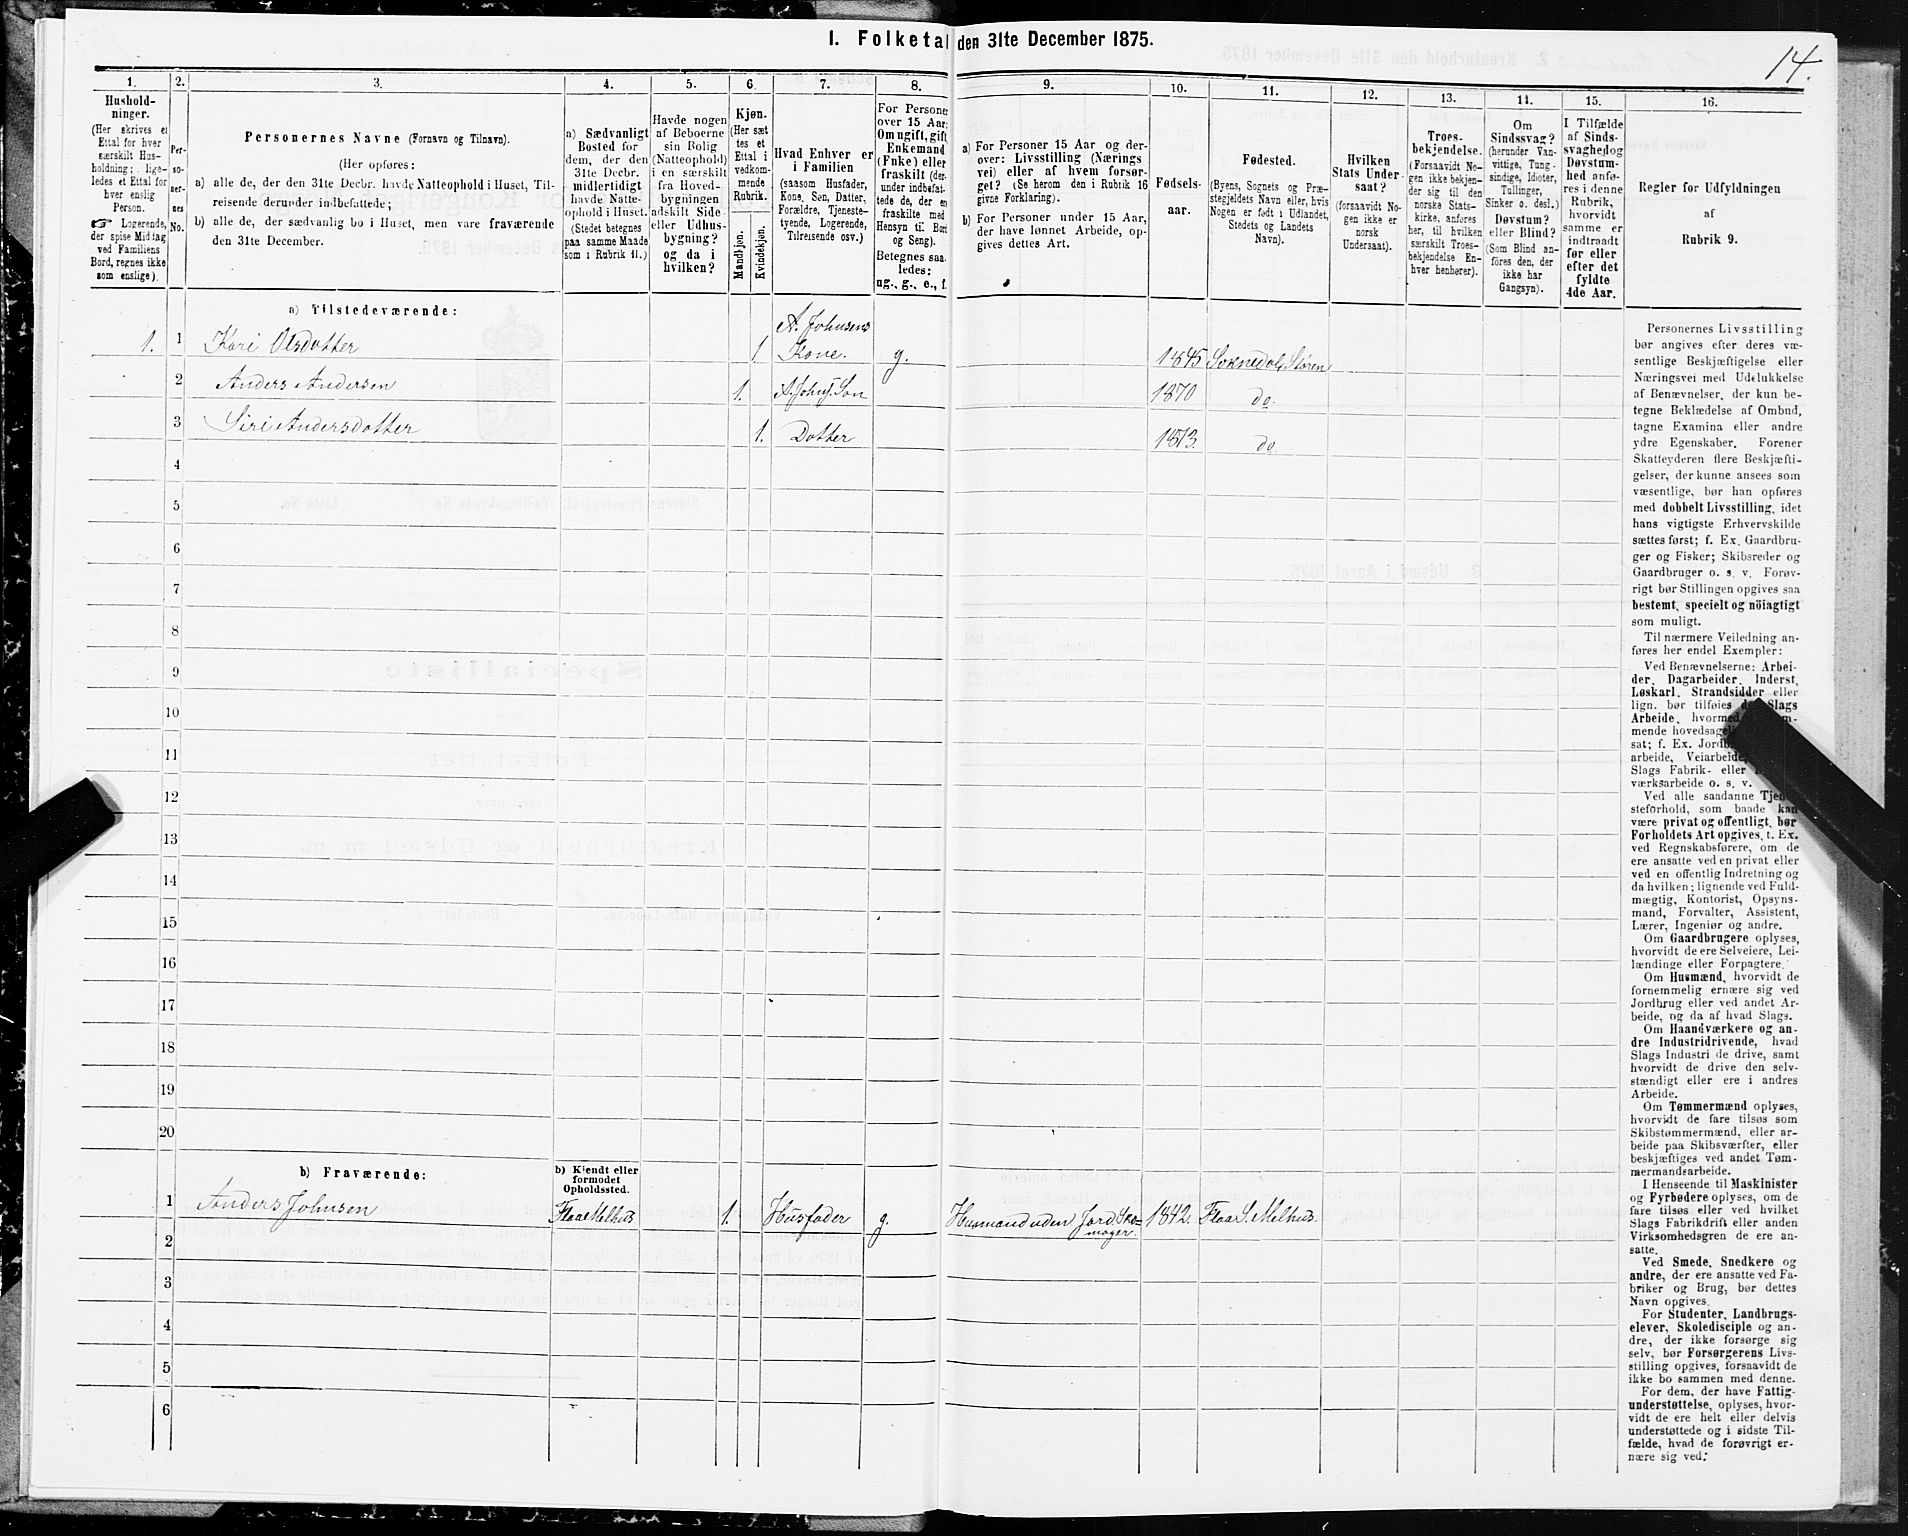 1. Folketal den 31te December 1875.
14.
1.
2.
3.
4.
5.
6.
7.
8.
9.
10.
11.
12.
13.
14.
15.
16.
Hushold-
ninger.
(Her skrives et
Ettal for hver
særskilt Hus-
holdning; lige-
ledes et Ettal for
hver enslig
Person.
☞ Logerende,
der spise Middag
ved Familiens
Bord, regnes ikke
som enslige).
Per-
so-
ner-
nes
No.
Personernes Navne (Fornavn og Tilnavn).
(Her opføres:
a) alle de, der den 31te Decbr. havde Natteophold i Huset, Til-
reisende derunder indbefattede;
b) alle de, der sædvanlig bo i Huset, men vare fraværende
den 31te December.
a) Sædvanligt
Bosted for
dem, der den
31te Decbr.
midlertidigt
havde Natte-
ophold i Huset.
(Stedet betegnes
paa samme Maade
som i Rubrik 11.)
Havde nogen
af Beboerne
sin Bolig
(Natteophold)
i en særskilt
fra Hoved-
bygningen
adskilt Side
eller Udhus-
bygning?
og da i
hvilken?
Kjøn.
(Her sæt
tes et
Ettal i
vedkom-
mende
Rubrik.
Mandkjøn.
Kvindekjøn.
Hvad Enhver er
i Familien
(saasom Husfader,
Kone, Søn, Datter,
Forældre, Tjeneste-
tyende, Logerende,
Tilreisende osv.)
For Persone
over 15 Aar:
Om ugift, gift,
Enkemand
(Enke) eller
fraskilt (der-
under indbefat-
tede de, der ere
fraskilte med
Hensyn til Bord
og Seng).
Betegnes saa-
ledes:
ug., g., e., f.
a) For Personer 15 Aar og der-
over: Livsstilling (Nærings
vei) eller af hvem forsør-
get? (Se herom den i Rubrik 16
givne Forklaring).
b) For Personer under 15 Aar,
der have lønnet Arbeide, op-
gives dettes Art.
Fødsels-
aar.
Fødested.
(Byens, Sognets og Præ-
stegjeldets Navn eller, hvis
Nogen er født i Udlandet,
Stedets og Landets
Navn).
Hvilken
Stats Under-
saat?
(forsaavidt No-
gen ikke er
norsk
Undersaat).
Troes-
bekjendelse.
(Forsaavidt No-
gen ikke bekjen-
der sig til den
norske Stats-
kirke, anføres
her, til hvilken
særskilt Troes-
bekjendelse En-
hver henhører).
Om
Sindssvag?
(herunder Van-
vittige, Tung-
sindige, Idioter,
Tullinger,
Sinker o. desl.)
Døvstum?
eller Blind?
(Som Blind an-
føres den, der
ikke har
Gangsyn).
I Tilfælde
af Sinds-
svaghed og
Døvstum-
hed anfø-
res i denne
Rubrik,
hvorvidt
samme er
indtraadt
før eller
efter det
fyldte
4de Aar.
Regler for Udfyldningen
af
Rubrik 9.
a) Tilstedeværende:
1. 1 Kari Olsdatter 1 A. Johnsens Kone. g. 1845 Soknedal, Støren
2 Anders Andersen 1. A. Johns. Søn 1870 do.
3 Siri Andersdatter 1. Datter 1873. do
4
5
6
7
8
9
10
11
12
13
14
15
16
17
18
19
20
b) Fraværende:
b) Kjendt eller
formodet
Opholdssted.
1 Anders Johnsen Flaa Melhus 1. Husfader g. Husmand uden Jord, Sko-
mager. 1842. Flaa S. Melhus.
2
3
4
5
6
Personernes Livsstilling
bør angives efter deres væ-
sentlige Beskjæftigelse eller
Næringsvei med Udelukkelse
af Benævnelser, der kun be-
tegne Beklædelse af Ombud,
tagne Examina eller andre
ydre Egenskaber. Forener
Skatteyderen flere Beskjæfti-
gelser, der kunne ansees som
væsentlige, bør han opføres
med dobbelt Livsstilling, idet
hans vigtigste Erhvervskilde
sættes først; f. Ex. Gaardbru-
ger og Fisker; Skibsreder og
Gaardbruger o. s. v. Forøv-
rigt bør Stillingen opgives saa
bestemt, specielt og nöiagtigt
som muligt.
Til nærmere Veiledning an-
føres her endel Exempler:
Ved Benævnelserne: Arbei-
der, Dagarbeider, Inderst,
Løskarl, Strandsidder eller
lign. bør tilføies Slags
Arbeide, hvormed
mende hovedsage
sat; f. Ex. Jord
arbeide, Veiarbeide,
Slags Fabrik- eller
værksarbeide o. s. v.
Ved alle saadanne Tjene-
steforhold, som baade kan
være privat og offentligt, bør
Forholdets Art opgives, t. Ex.
ved Regnskabsførere, om de
ere ansatte ved en privat eller
ved en offentlig Indretning og
da hvilken; lignende ved Fuld-
mægtig, Kontorist, Opsyns-
mand, Forvalter, Assistent,
Lærer, Ingeniør og andre.
Om Gaardbrugere oplyses,
hvorvidt de ere Selveiere, Lei-
lændinge eller Forpagtere.
Om Husmænd, hvorvidt de
fornemmelig ernære sig ved
Jordbrug eller ved andet Ar-
beide, og da af hvad Slags.
Om Haandværkere og an-
dre Industridrivende, hvad
Slags Industri de drive, samt
hvorvidt de drive den selv-
stændigt eller ere i andres
Arbeide.
Om Tømmermænd oplyses,
hvorvidt de fare tilsøs som
Skibstømmermænd, eller ar-
beide paa Skibsværfter, eller
beskjæftiges ved andet Tøm-
mermandsarbeide.
I Henseende til Maskinister
og Fyrbødere oplyses, om de
fare tilsøs eller ved hvilket
Slags Fabrikdrift eller anden
Virksomhedsgren de ere an-
satte.
Ved Smede, Snedkere og
andre, der ere ansatte ved Fa-
briker og Brug, bør dettes
Navn opgives.
For Studenter, Landbrugs-
elever, Skoledisciple og an-
dre, der ikke forsørge sig
selv, bør Forsørgerens Livs-
stilling opgives, forsaavidt de
ikke bo sammen med denne.
For dem, der have Fattig-
understøttelse, oplyses, hvor-
vidt de ere helt eller delvis
understøttede og i sidste Til-
fælde, hvad de forøvrigt er-
nære sig ved.